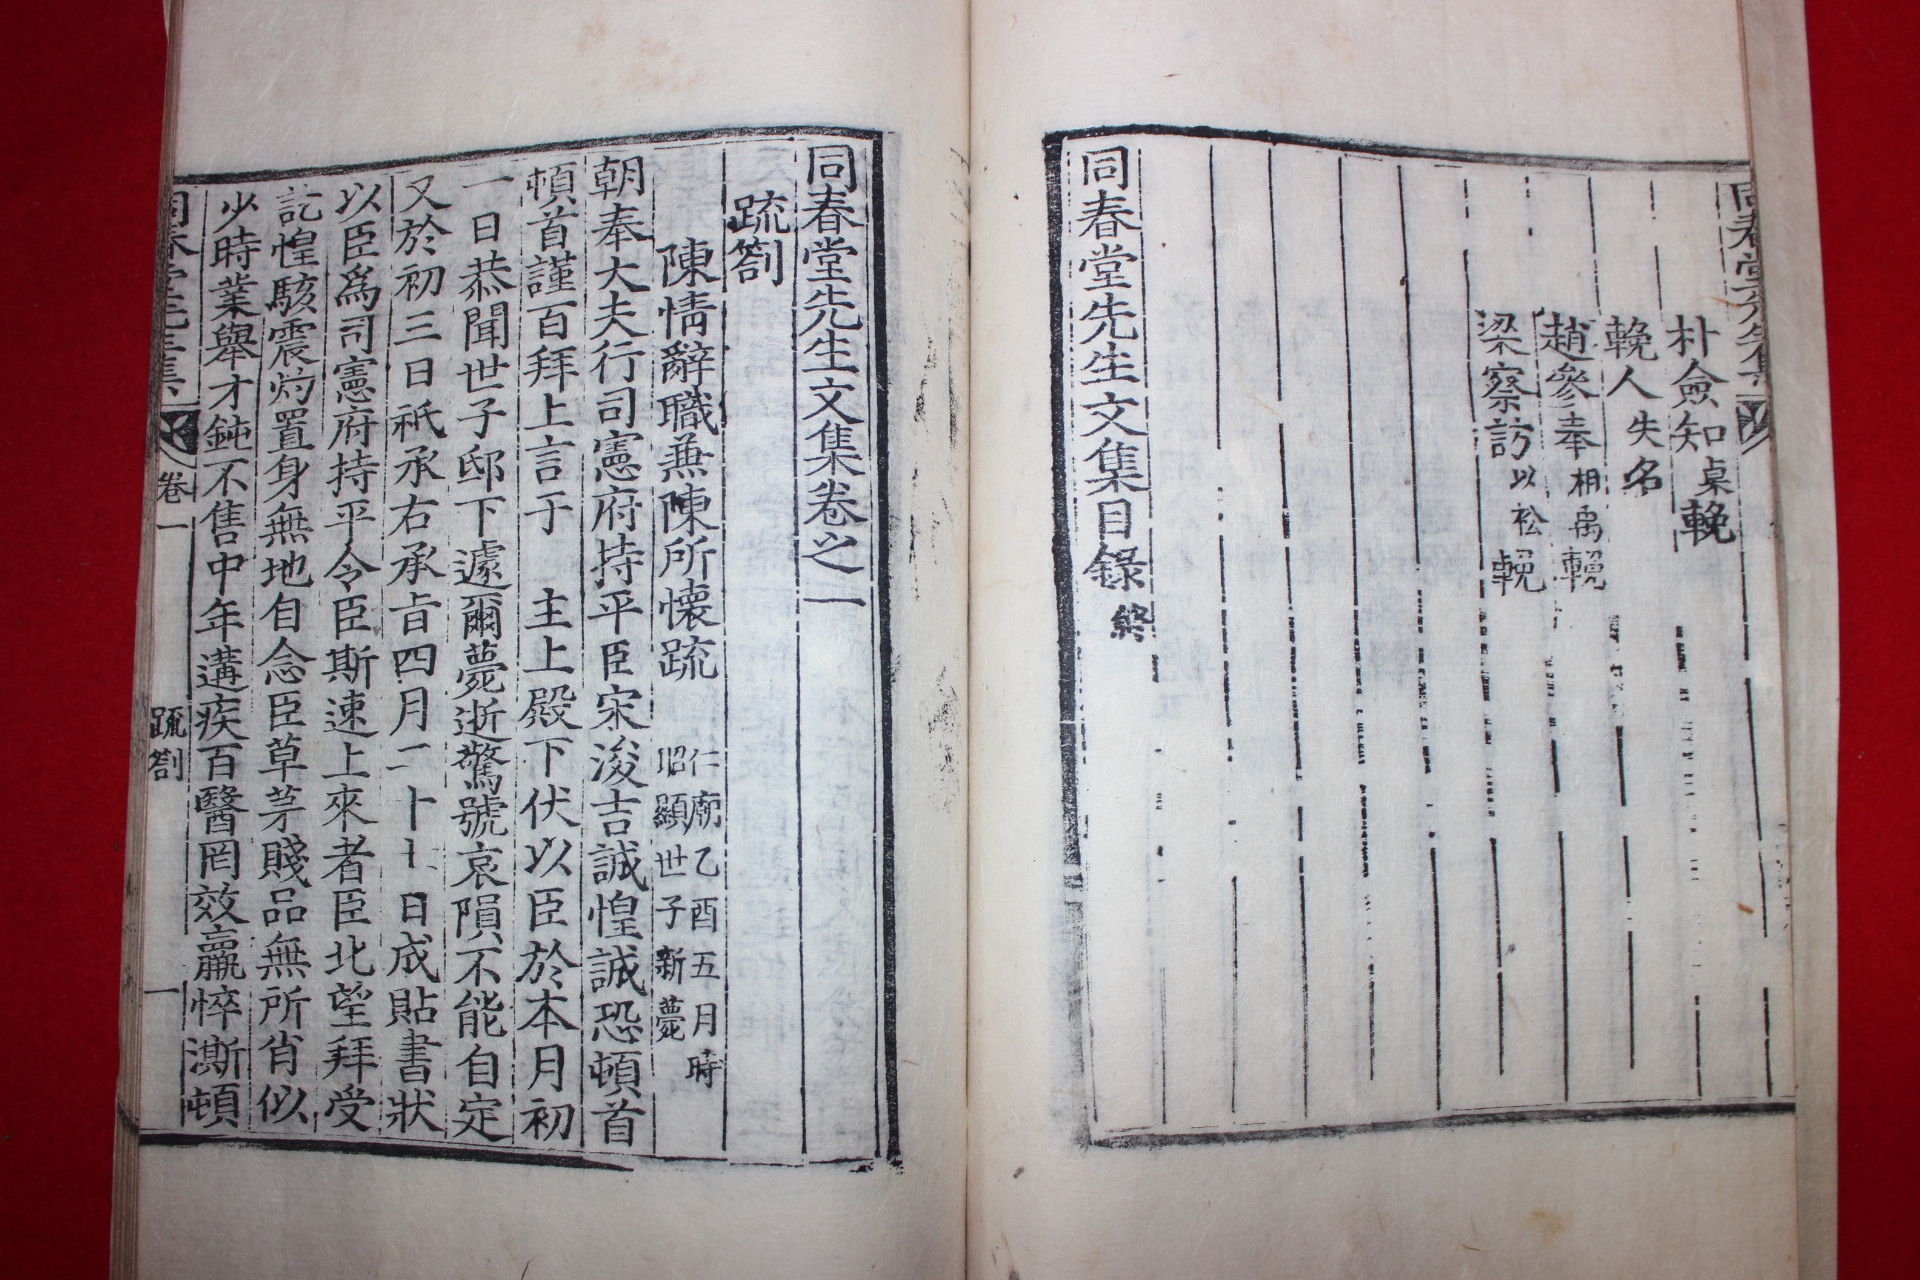 朴僉知㮈輓
輓人失名
趙參奉相禹輓
梁察訪以松輓
同春堂先生文集目錄終
同春堂先生文集卷之一
疏箚
陳情辭職兼陳所懷疏 仁廟乙酉五月時昭顯世子新薨
朝奉大夫行司憲府持平臣宋浚吉誠惶誠恐頓首
頓首謹百拜上言于 主上殿下伏以臣於本月初
一日恭聞世子邸下遽爾薨逝驚號哀隕不能自定
又於初三日祇承右承旨四月二十七日成貼書狀
以臣爲司憲府持平令臣斯速上來者臣北望拜受
訖惶駭震灼置身無地自念臣草茅賤品無所肖似
少時業舉才鈍不售中年遘疾百醫罔效羸悴澌頓
卷一
疏箚
一